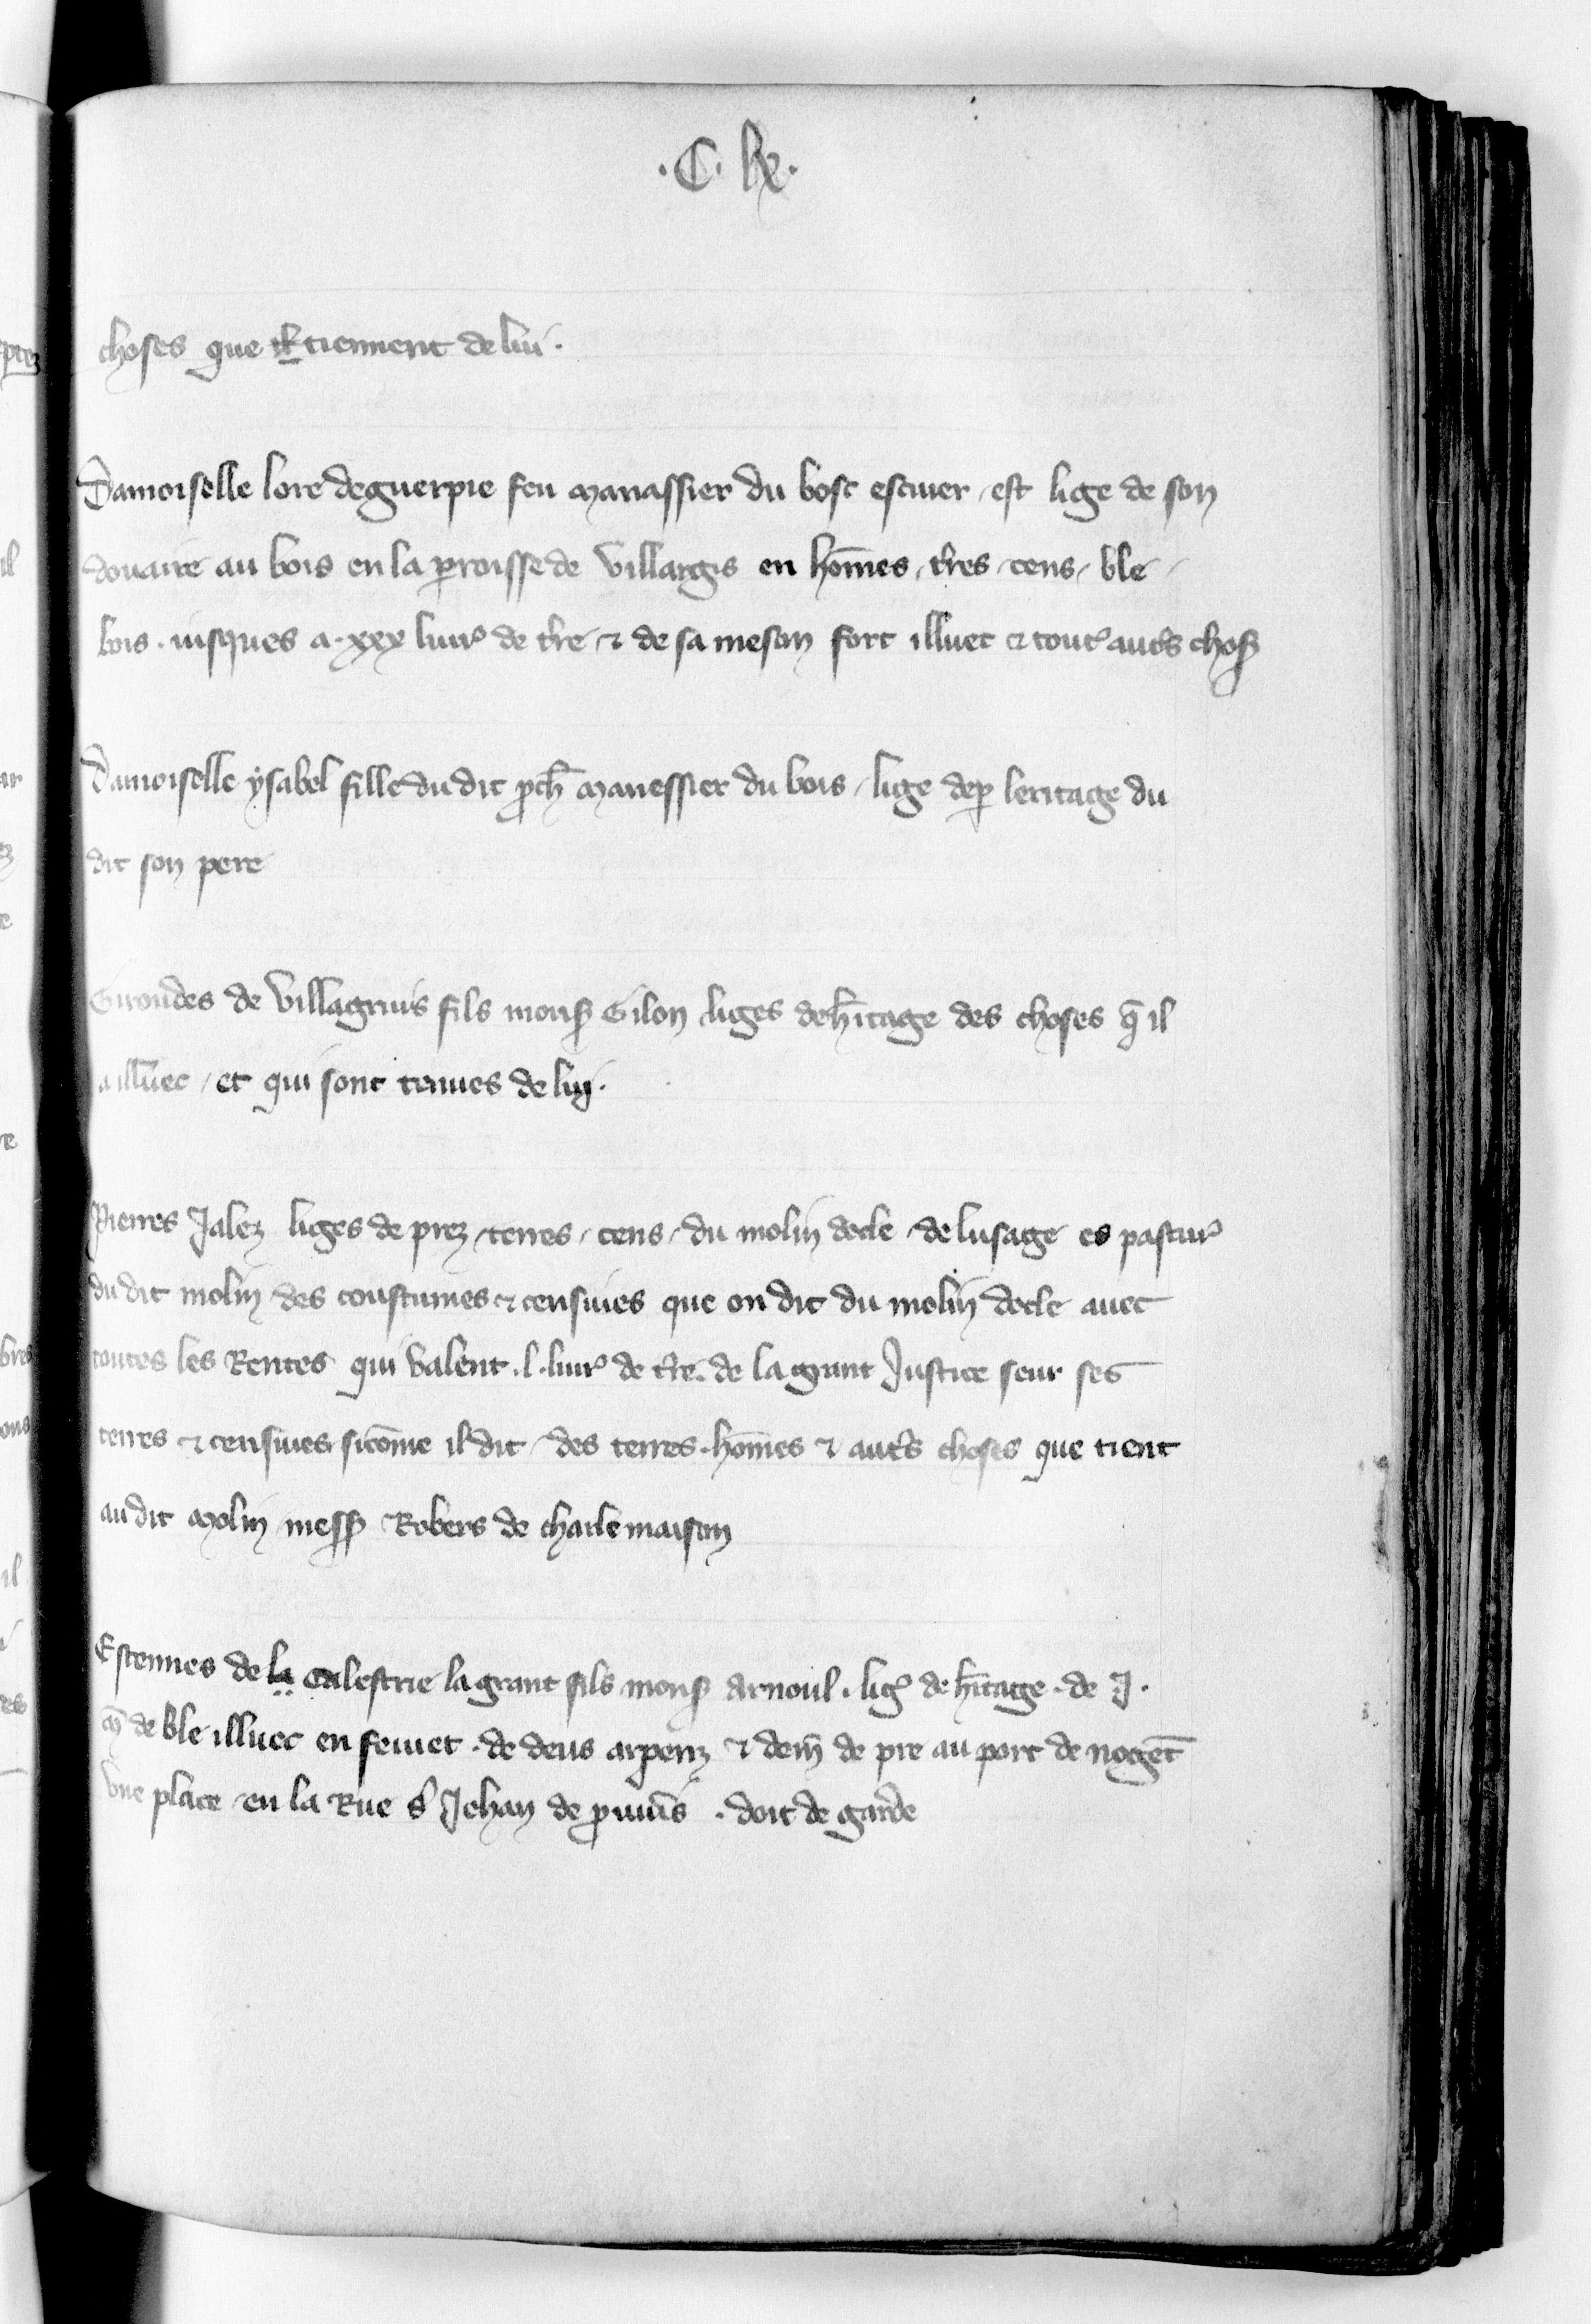 .C. lx.
choses que tiennent de lui.
Damoiselle lore deguerpie feu Manassier du bosc escuier / est lige de son
douaire au bois en la proisse de Villargis en hom̄es / t̄res / cens / ble /
bois . iusques a . xxx liur̉ de t̄re / ⁊ de sa meson fort illuec ⁊ tout̉ aut̄s chos̉
Damoiselle ysabel fille dudit p̄ch̄ Manessier du bois / lige de p̱ leritage du
dit son pere
Girondes de Villagruis fils mons̉ Gilon liges de h̄itage des choses q̄ il
a illuec / et qui sont tenues de luy.
Pierres Jalez liges de prez / terres / cens / du molin decle / de lusage es pastur̉
dudit molin des coustumes ⁊ censiues que on dit du molin decle auec
toutes les Rentes qui valent . l . liur̉ de t̄re . de la grant Justice seur ses
terres ⁊ censiues sicōme il dit / des terres . hom̄es ⁊ aut̄s choses que tient
audit Molin mess̉ Robers de chalemaison
Estennes de la calestrie la grant fils mons̉ Arnoul . lig̉ de h̄itage . de .J.
m̄ de ble illuec en feuuet . de deus arpenz ⁊ dem̄ de pre au port de nogēt
vne place / en la Rue s̄ Jehan de prouī̄s . doit de garde